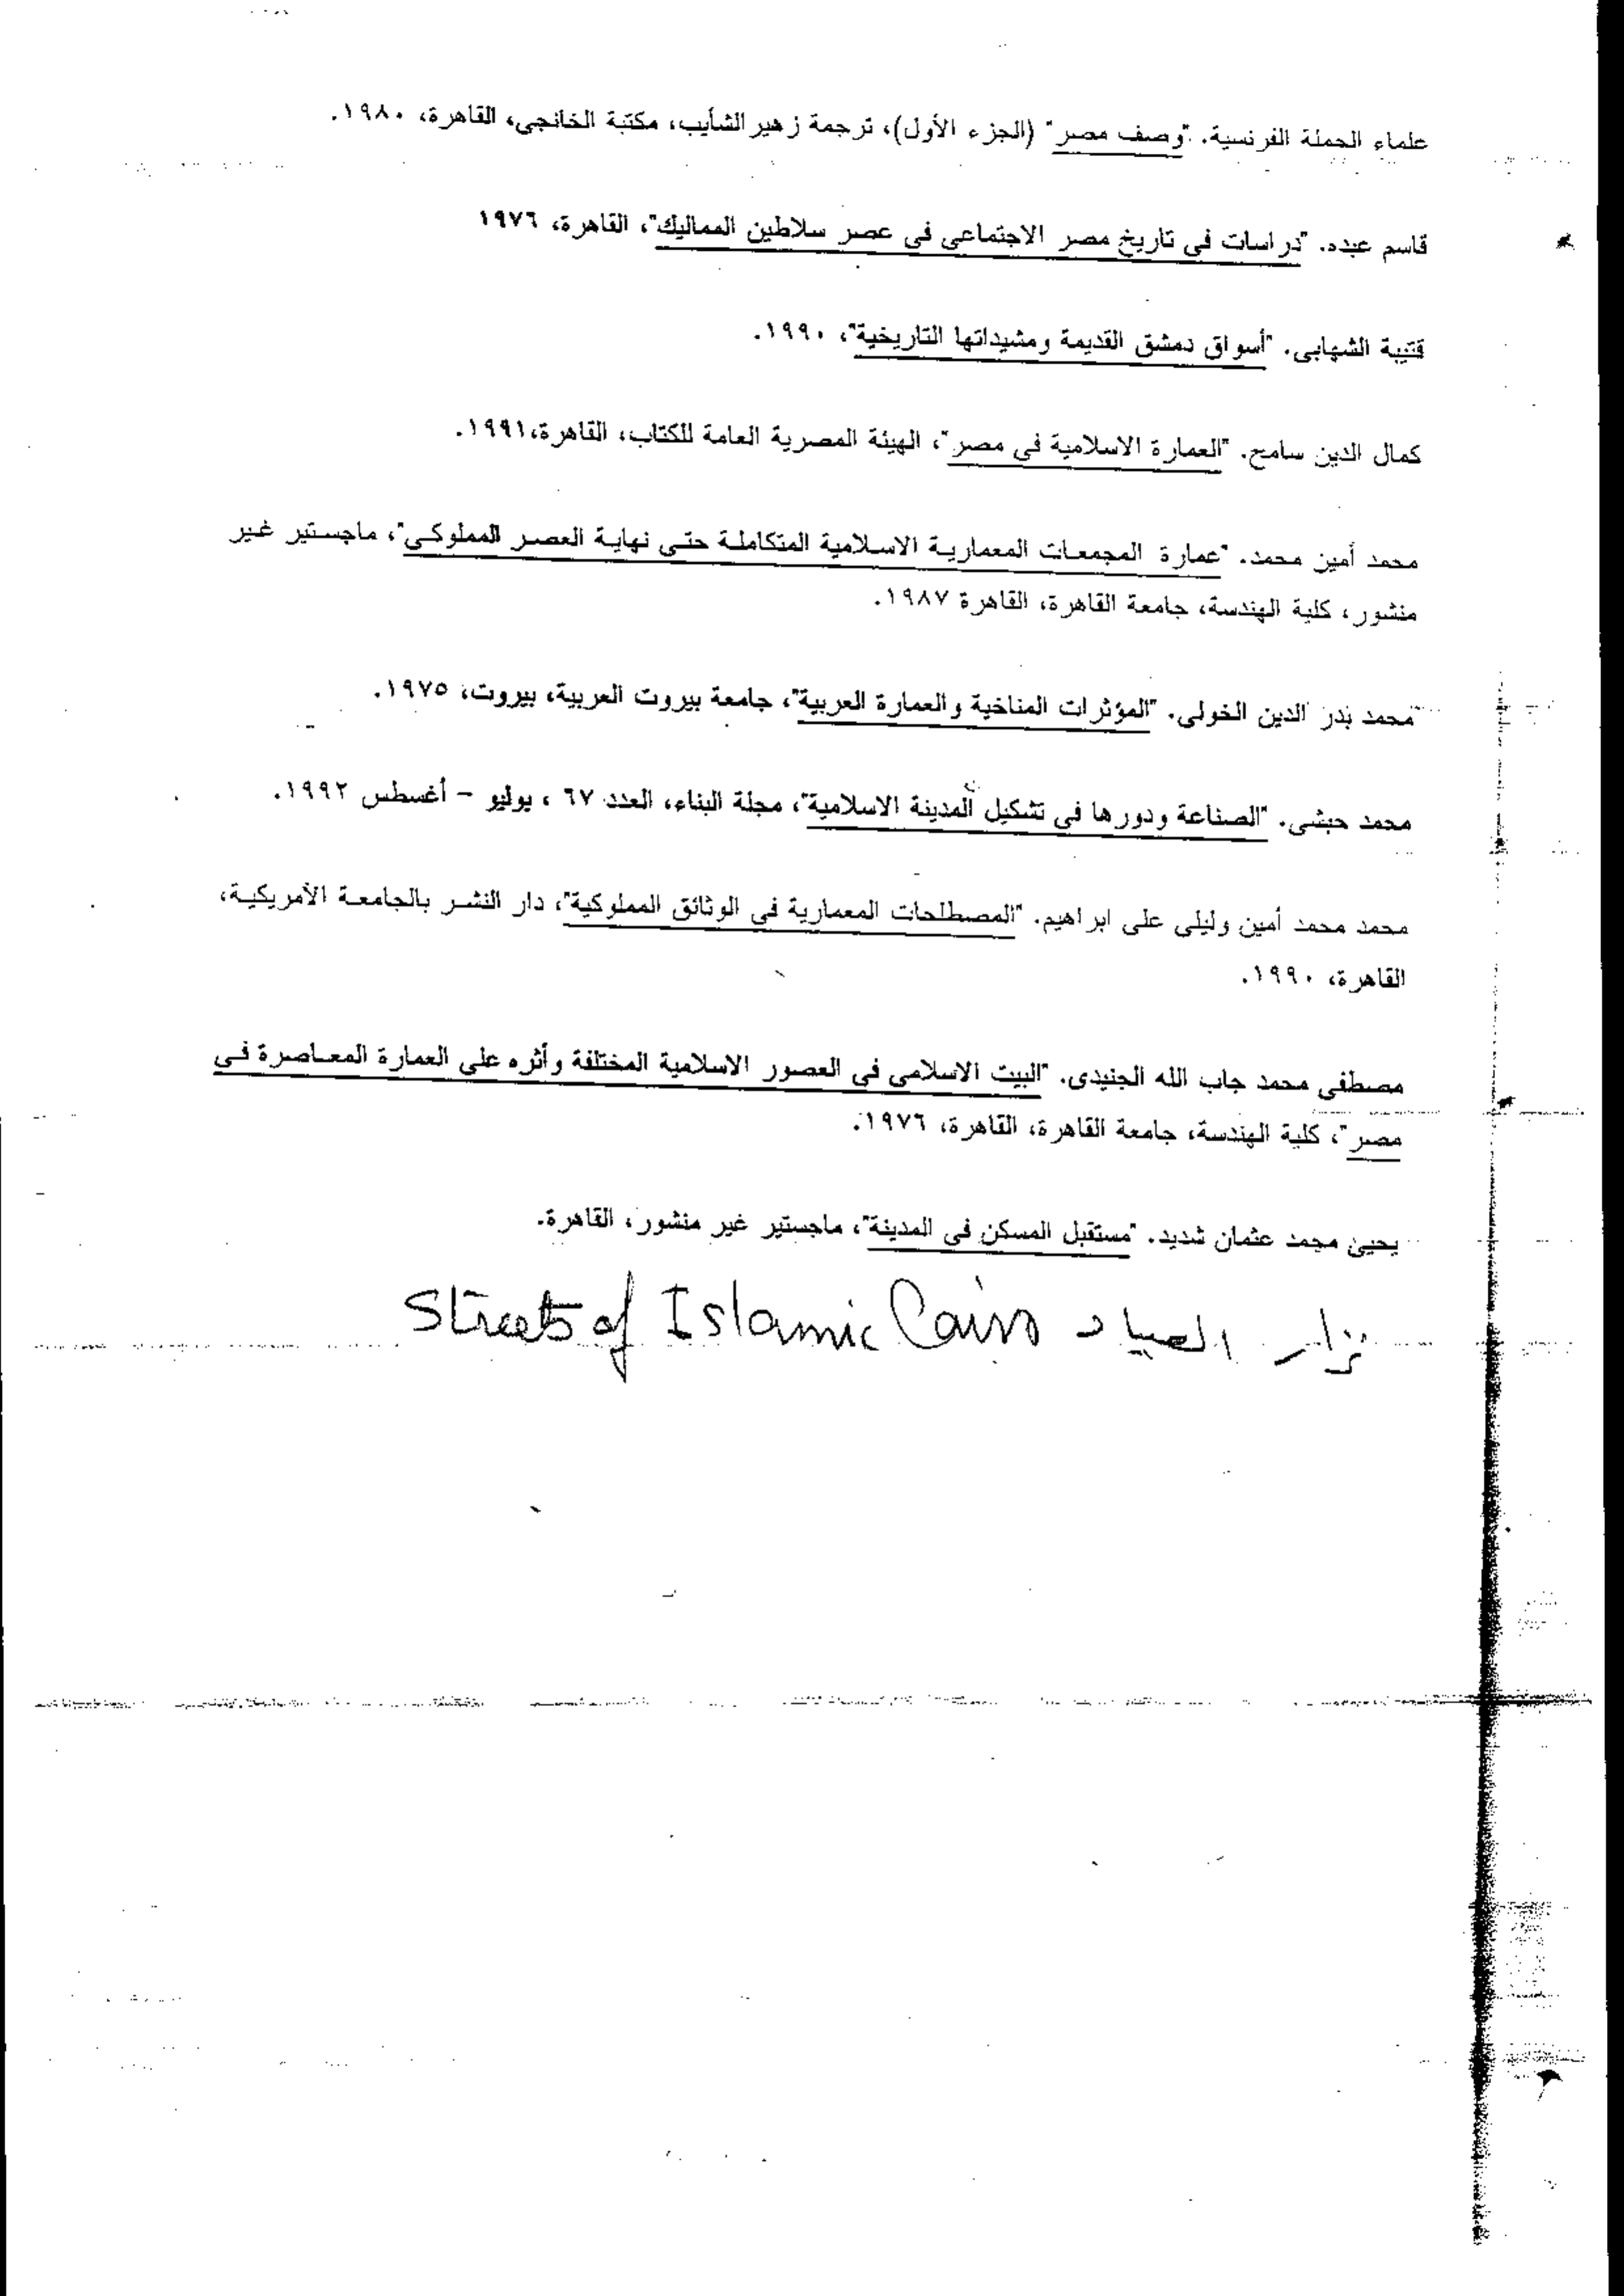 علماء الحملة الفرنسية. "وصف مصر" (الجزء الأول)، ترجمة زهير الشأيب، مكتبة الخانجى، القاهرة، ١٩٨٠.
قاسم عبده. "دراسات فى تاريخ مصر الاجتماعى فى عصر سلاطين المماليك"، القاهرة، ١٩٧٦
قتيبة الشهابى. "أسواق دمشق القديمة ومشيداتها التاريخية"، ١٩٩٠.
كمال الدين سامح. "العمارة الاسلامية فى مصر"، الهيئة المصرية العامة للكتاب، القاهرة،١٩٩١.
محمد أمين محمد. "عمارة المجمعات المعمارية الاسلامية المتكاملة حتى نهاية العصر المملوكى"، ماجستير غير
منشور، كلية الهندسة، جامعة القاهرة، القاهرة ١٩٨٧.
محمد بدر الدين الخولى. "المؤثرات المناخية والعمارة العربية"، جامعة بيروت العربية، بيروت، ١٩٧٥.
محمد حبشى. "الصناعة ودورها فى تشكيل المدينة الاسلامية"، مجلة البناء، العدد ٦٧ ، يوليو - أغسطس ١٩٩٢.
محمد محمد أمين وليلى على ابراهيم. "المصطلحات المعمارية فى الوثائق المملوكية"، دار النشر بالجامعة الأمريكية،
القاهرة، ١٩٩٠.
مصطفى محمد جاب الله الجنيدى. "البيت الاسلامى فى العصور الاسلامية المختلفة وأثره على العمارة المعاصرة فى
مصر"، كلية الهندسة، جامعة القاهرة، القاهرة، ١٩٧٦.
يحيى محمد عثمان شديد. "مستقبل المسكن فى المدينة"، ماجستير غير منشور، القاهرة.
نزار الصياد Streets of Islamic Cairo